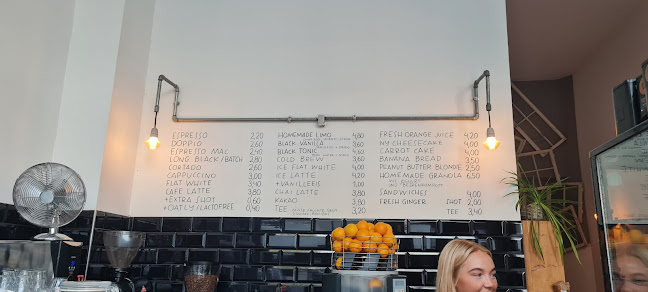 ESPRESSO 2,20
DOPPIO 2,60
ESPRESSO MAC. 2,40
LONG BLACK/BATCH 2,80
CORTADO 2,60
CAPPUCCINO 3,00
FLAT WHITE 3,40
CAFE LATTE 3,80
+EXTRA SHOT 0,60
+OATLY/LACTOFREE 0,40
HOMEMADE LIMO 4,80
BLACK VANILLA
BLACK TONIC
COLD BREW 3,60
ICE FLAT WHITE 4,00
ICE LATTE 4,20
+VANILLEEIS 1,00
CHAI LATTE 3,80
KAKAO 3,80
TEE 3,80
FRESH ORANGE JUICE 4,20
NY CHEESECAKE 4,00
CARROT CAKE 4,00
BANANA BREAD 3,50
PEANUT BUTTER BLONDIE 2,50
HOMEMADE GRANOLA 6,50
SANDWICHES 4,00
FRESH GINGER SHOT 2,00
TEE 3,40